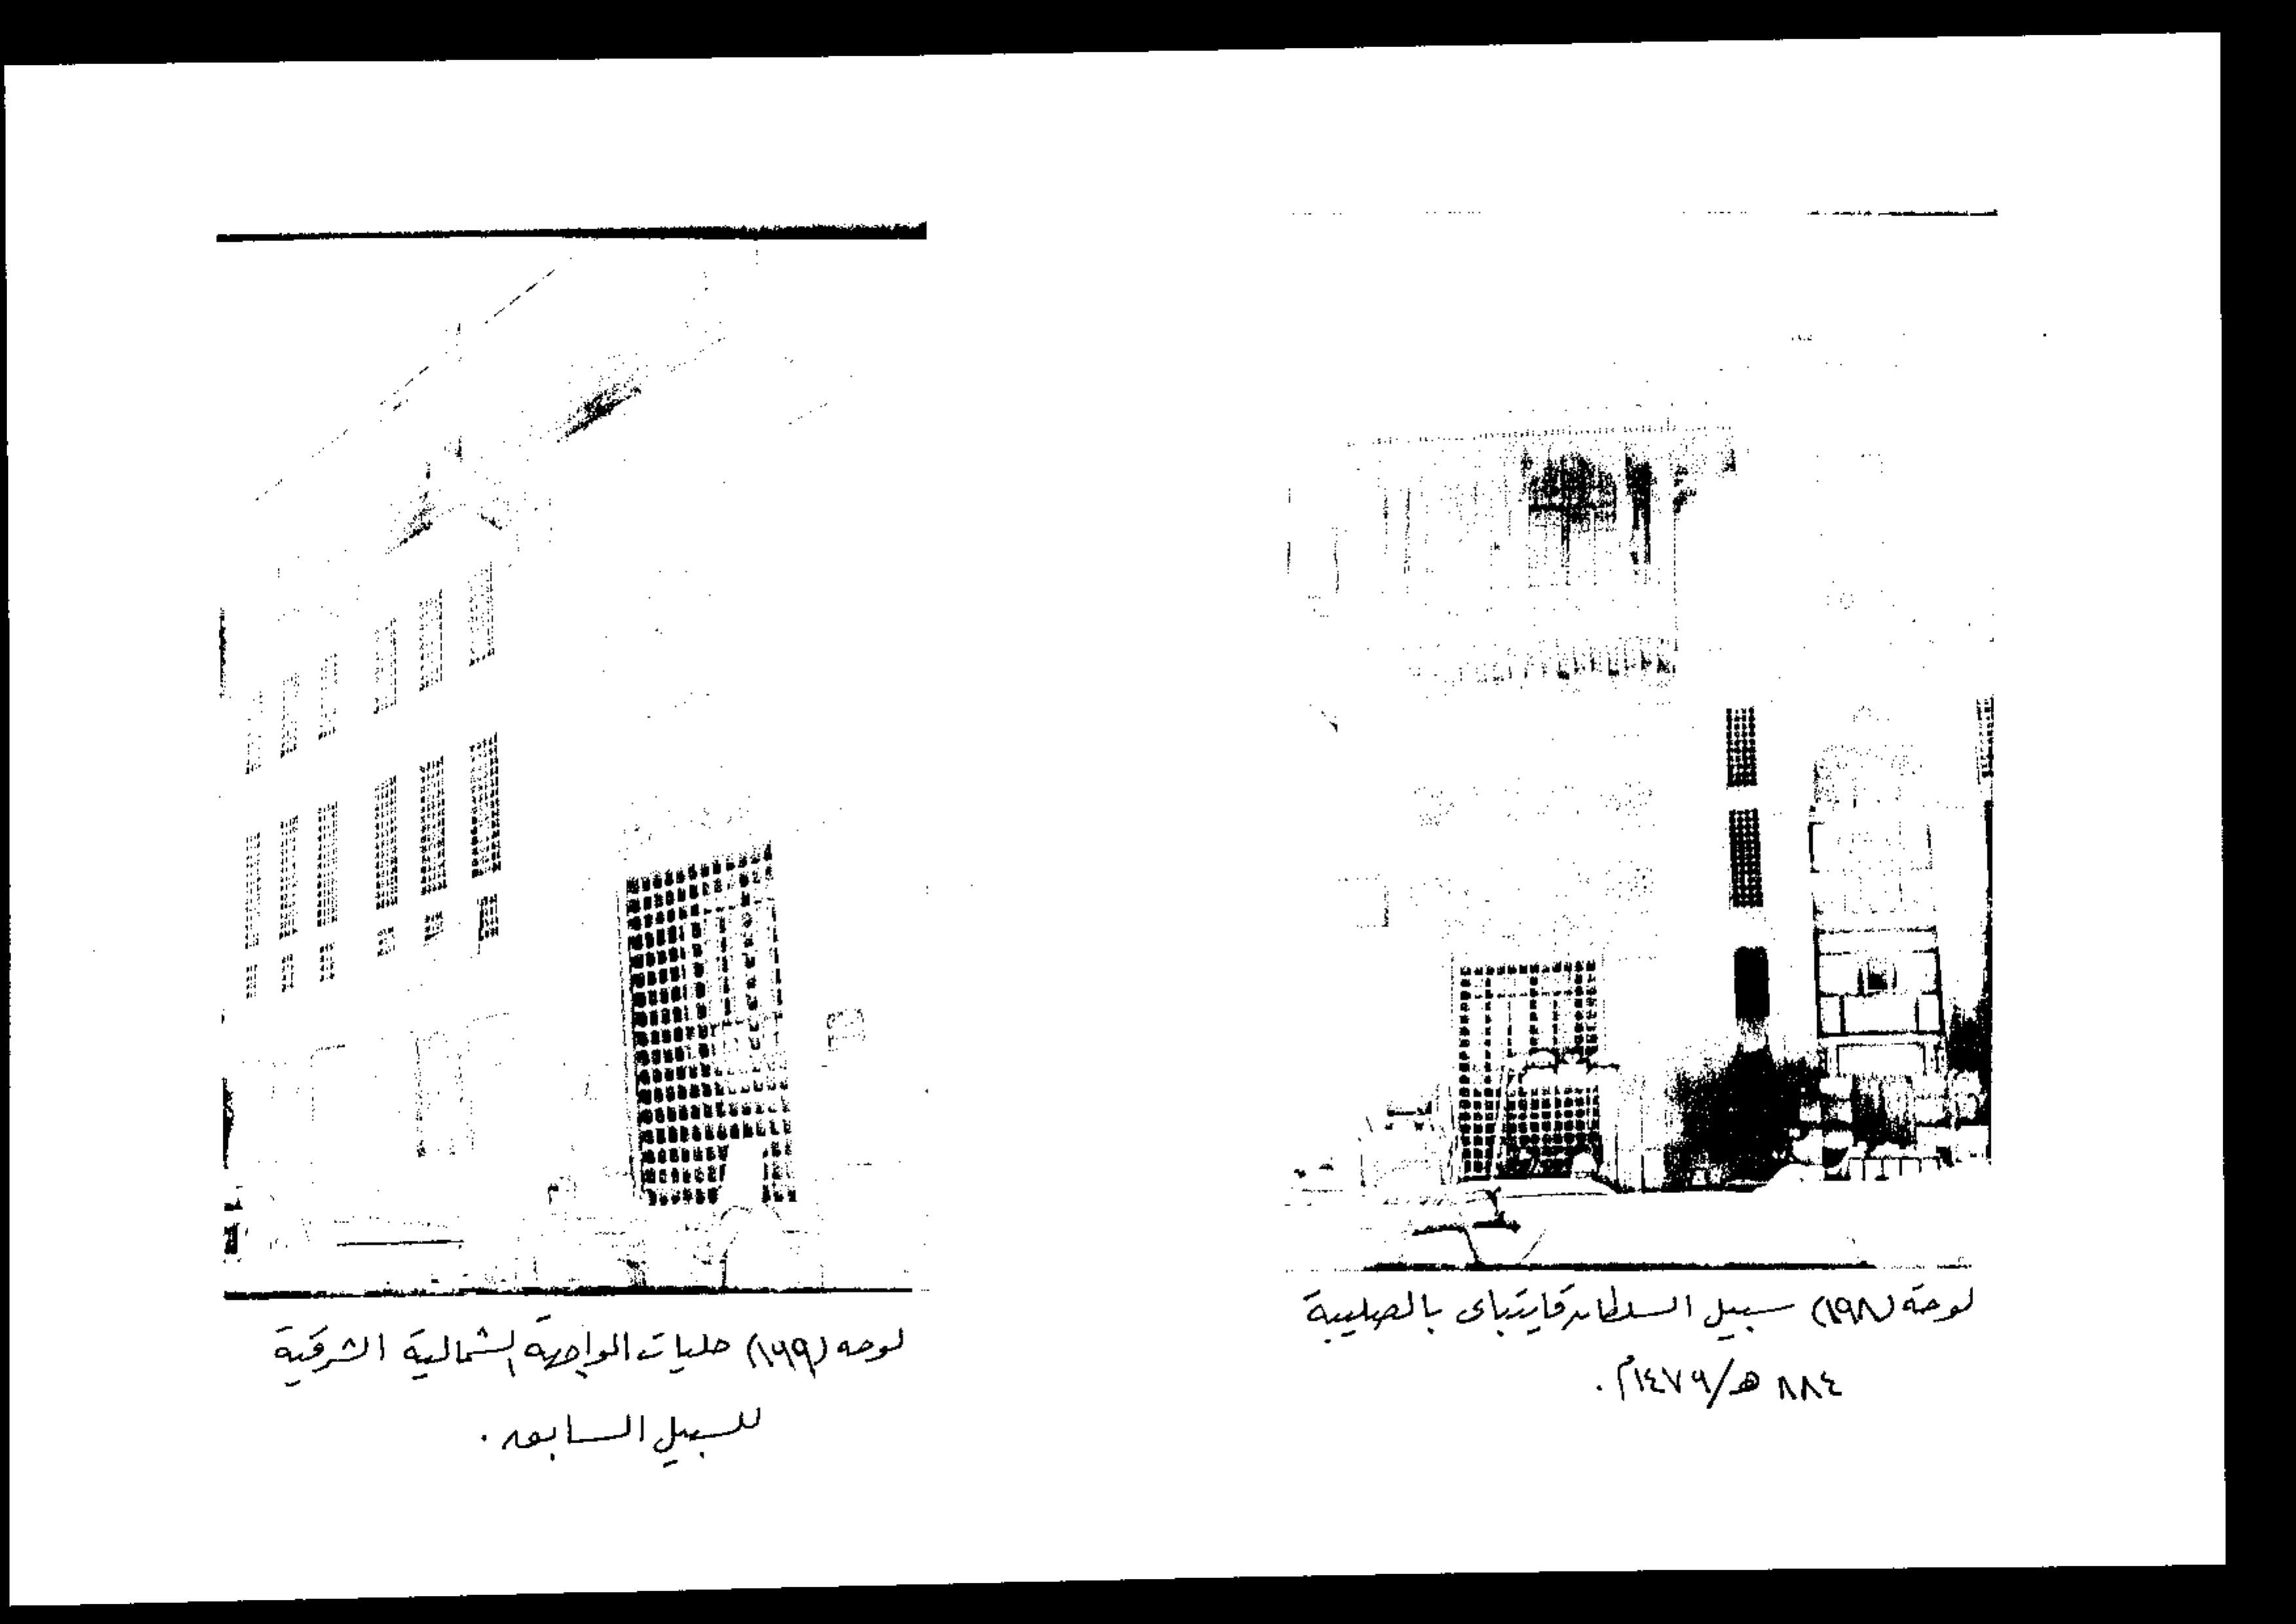 لوحة (١٩٨) سبيل السلطان قايتباى بالصليبة
٨٨٤ هـ/١٤٧٩م .
لوحه (١٩٩) حليات الواجهة الشمالية الشرقية
للسبيل السابق .